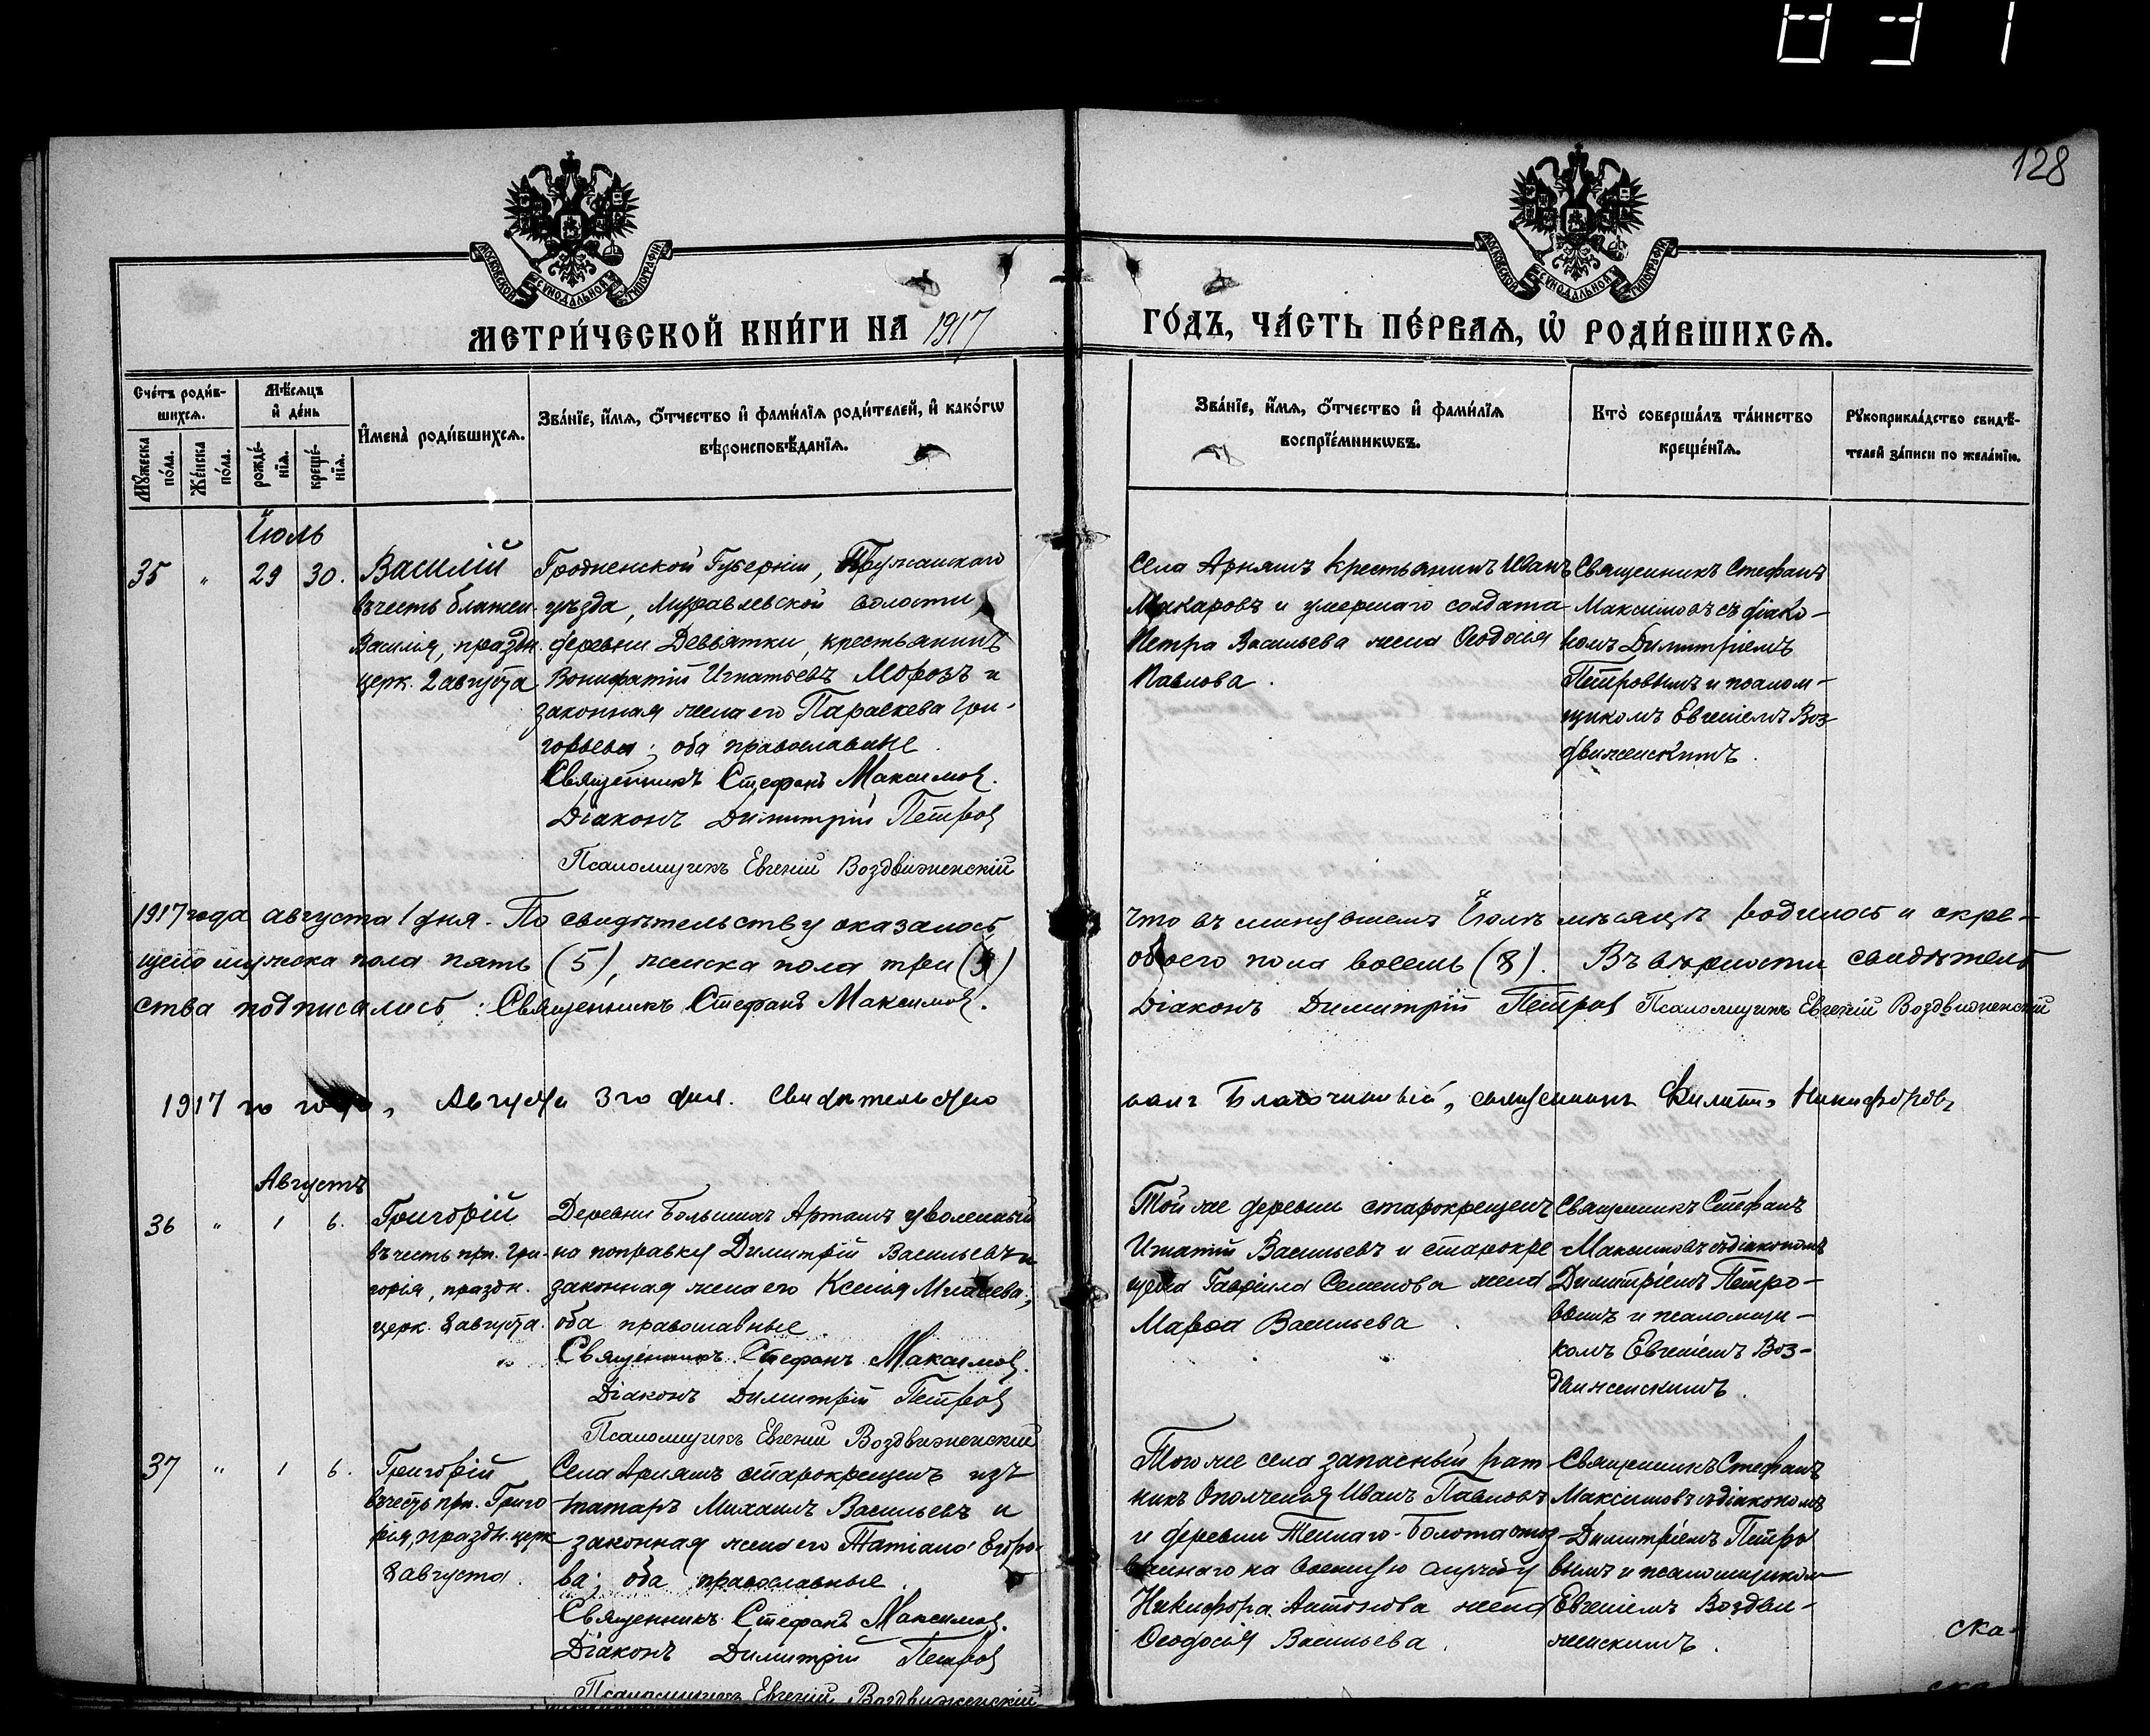 831
128
МОСКОВСКОЙ СѴНОДАЛЬНОЙ ТИПОГРАФІИ
МОСКОВСКОЙ СѴНОДАЛЬНОЙ ТИПОГРАФІИ
МЕТРИ́ЧЕСКОЙ КНИ́ГИ НА 1917
ГО́ДЪ, ЧА́СТЬ ПЕ́РВАѦ, Ѡ҆ РОДИ́ВШИХСѦ.
Сче́тъ роди́в-
шихсѧ.
Мѣ́сѧцъ
и҆ де́нь
Мꙋ́жеска
по́ла.
Же́нска
по́ла.
рожде́-
нїѧ.
креще́-
нїѧ.
И҆мена̀ роди́вшихсѧ.
Зва́нїе, и҆́мѧ, ѻ҆́тчество и҆ фами́лїѧ роди́телей, и҆ како́гѡ
вѣроисповѣ́данїѧ.
Зва́нїе, и҆́мѧ, ѻ҆́тчество и҆ фами́лїѧ
воспрїе́мникѡвъ.
Кто̀ соверша́лъ та́инство
креще́нїѧ.
Рꙋкоприкла́дство свидѣ́-
телей за́писи по жела́нїю.
Іюль
35 " 29 30.
Василій
въ честь блажен.
Василія, праздн.
церк. 2 августа
Гродненской Губерніи, Пружанскаго
уѣзда, Муравьевской волости
деревни Девятки, крестьянинъ
Вонифатій Игнатьевъ Морозъ и
законная жена его Параскева Гри-
горьева; оба православные.
Священникъ Стефанъ Максимов.
Діаконъ Димитрій Петров
Псаломщикъ Евгеній Воздвиженскій
Села Арняшъ крестьянинъ Иванъ
Макаровъ и умершаго солдата
Петра Васильева жена Ѳеодосія
Павлова.
Священникъ Стефанъ
Максимовъ съ діако-
номъ Димитріемъ
Петровымъ и псалом-
щикомъ Евгеніемъ Воз-
движенскимъ.
1917 года августа 1 дня. По свидѣтельству оказалось,
что въ минувшемъ Іюлѣ мѣсяцѣ родилось и окре-
щено мужеска пола пять (5), женска пола три (3)
обоего пола восемь (8). Въ вѣрности свидѣтель
ства подписались: Священникъ Стефанъ Максимов.
Діаконъ Димитрій Петров Псаломщикъ Евгеній Воздвиженскій
1917 го года, Августа 3го дня. Свидѣтельство
валъ Благочинный, священникъ Филиппъ Никифоровъ
Августъ
36 " 1 6.
Григорій
въ честь прп. Гри-
горія, праздн.
церк. 8 августа.
Деревни Большихъ Арташъ уволенный
на поправку Димитрій Васильевъ и
законная жена его Ксенія
оба православные.
Священникъ Стефанъ Максимов.
Діаконъ Димитрій Петров
Псаломщикъ Евгеній Воздвиженскій
Той же деревни старокрещенъ
Игнатій Васильевъ и старокре
щена Гавріила Семенова жена
Марѳа Васильева.
Священникъ Стефанъ
Максимовъ съ діакономъ
Димитріемъ Петро-
вымъ и псаломщи-
комъ Евгеніемъ Воз-
движенскимъ.
37 " 1 6.
Григорій
въ честь прп. Григо
рія, праздн. церк
8 августа.
Села Арняшъ старокрещенъ изъ
татаръ Михаилъ Васильевъ и
законная жена его Татіана Егоро-
ва; оба православные.
Священникъ Стефанъ Максимов.
Діаконъ Димитрій Петров
Псаломщикъ Евгеній Воздвиженскій
Того же села запасный рат
никъ Ополченія Иванъ Павловъ
и деревни Теплаго-Болота
на военную службу
Никифора Антонова жена
Ѳеодосія Васильева.
Священникъ Стефанъ
Максимовъ съ діакономъ
Димитріемъ Петро
вымъ и псаломщиком
Евгеніемъ Воздви-
женскимъ.
ска-